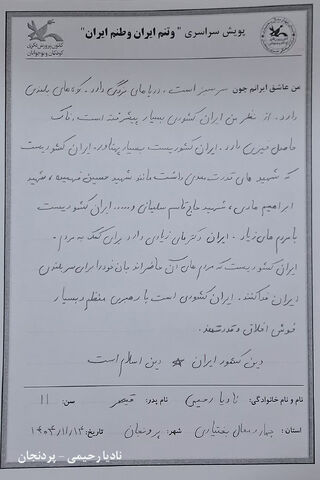 پویش سراسری "وتنم ایران وطنم ایران"
کانون پرورش فکری
کودکان و نوجوانان
من عاشق ایرانم چون سرسبز است، دریاهای بزرگی دارد. کوه‌های بلندی
دارد. از نظر من ایران کشوری بسیار پیشرفته است. خاک
حاصل خیزی دارد. ایران کشوریست بسیار پهناور. ایران کشوریست
که شهید های قدرت مندی داشت مانند شهید حسین فهمیده، شهید
ابراهیم هادی، شهید حاج قاسم سلیمانی و..... ایران کشوریست
با مردم های زیاد. ایران دکتر های زیادی دارد برای کمک به مردم.
ایران کشوریست که مردم های آن حاضراند جان خود را برای سربلندی
ایران فدا کنند. ایران کشوری است با رهبری منظم و بسیار
خوش اخلاق و قدرتمند.
دین کشور ایران ☆ دین اسلام است
نام و نام خانوادگی: نادیا رحیمی نام پدر: قیصر سن: 11
استان: چهارمحال بختیاری شهر: پردنجان تاریخ: ۱۴۰۴/۱۱/۱۴
نادیا رحیمی - پردنجان